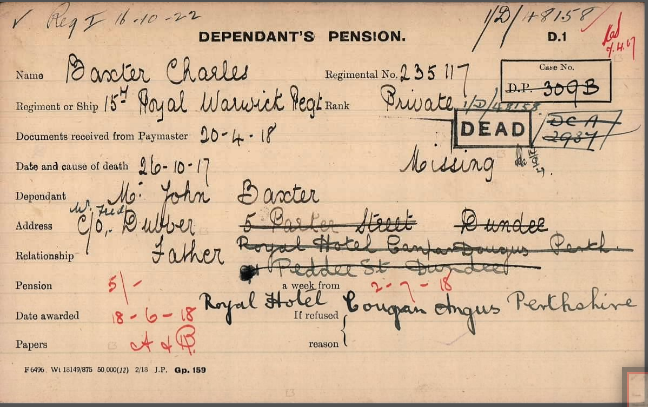 ✓ Reg I 16-10-22 1/D/ +8158
DEPENDANT'S PENSION. D.1
Name Baxter Charles Regimental No. 235117 Case No.
D.P. 309B
Regiment or Ship 15th Royal Warwick Regt Rank Private 1/D/48158
Documents received from Paymaster 20-4-18 DEAD DCA
2937
Date and cause of death 26-10-17 Missing
Dependant Mr John Baxter
Address c/o Dubber 5 Parker Street Dundee
Relationship Father Royal Hotel Perth
Peddie St Dundee
Pension 5/- a week from 2-7-18
Royal Hotel Coupar Angus Perthshire
Date awarded 18-6-18 If refused
Papers reason
F 6496. Wt 18149/875 50,000(11) 2/18 J.P. Gp. 159